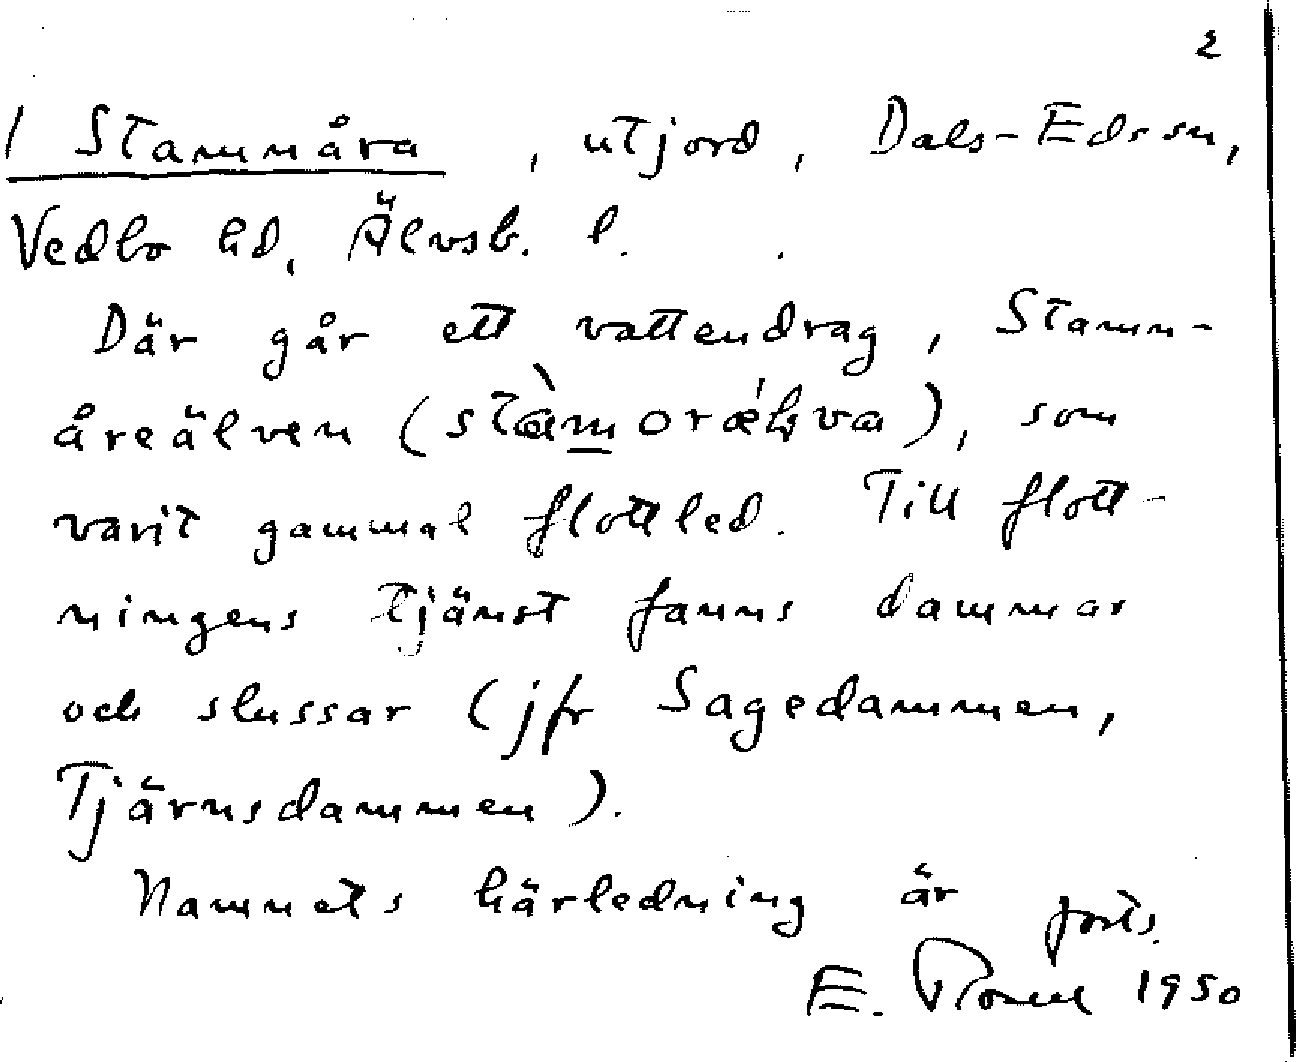 2
/ Stammåra , utjord , Dals-Eds sn,
Vedbo hd, Älvsb. l.
Där går ett vattendrag, Stamm-
åreälven (), som
varit gammal flottled. Till flott-
ningens tjänst fanns dammar
och slussar (jfr Sagedammen,
Tjärnsdammen).
Namnets härledning är forts.
E. 1950